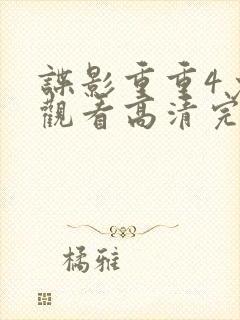 諜影重重4
觀看高清完
橘雅